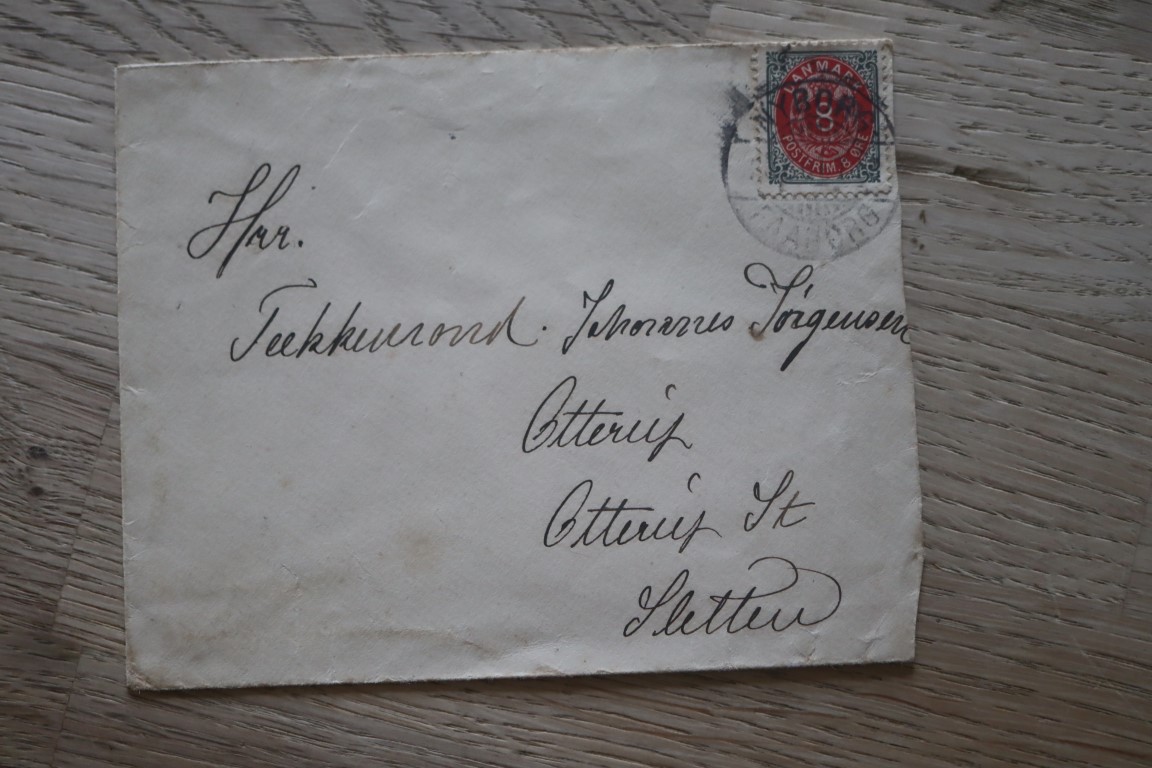 DANMARK
8
POSTFRIM. 8 ØRE
FAABORG
Hrr.
Johannes Jørgensen
Otterup
Otterup St
Sletten